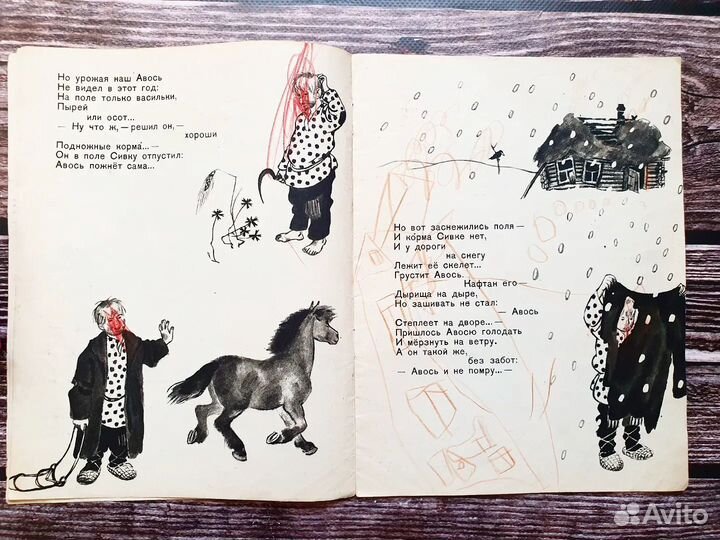 Но урожая наш Авось
Не видел в этот год:
На поле только васильки,
Пырей
или осот...
— Ну что ж, — решил он, —
хороши
Подножные корма... —
Он в поле Сивку отпустил:
Авось пожнёт сама...
Но вот заснежились поля —
И ко́рма Сивке нет,
И у дороги
на снегу
Лежит её скелет...
Грустит Авось.
Кафтан его —
Дырища на дыре,
Но зашивать не стал:
— Авось
Степлеет на дворе... —
Пришлось Авосю голодать
И мёрзнуть на ветру.
А он такой же,
без забот:
— Авось и не помру... —
Avito